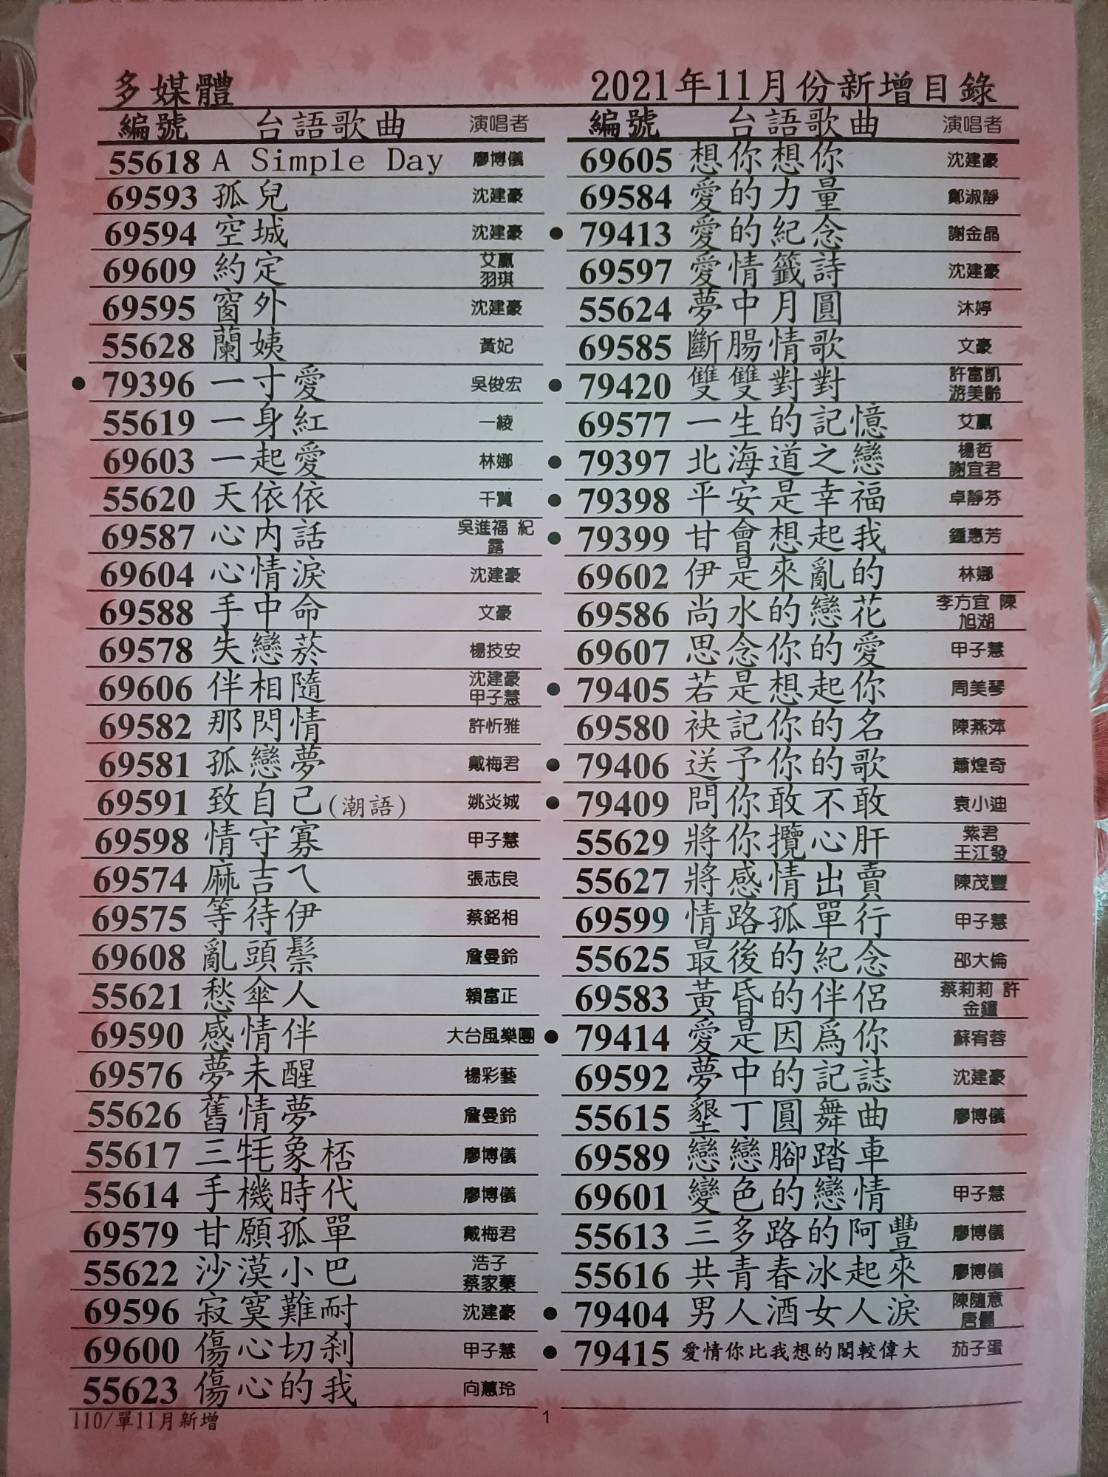 多媒體
2021年11月份新增目錄
編號 台語歌曲 演唱者
55618 A Simple Day 廖博儀
69593 孤兒 沈建豪
69594 空城 沈建豪
69609 約定 艾贏 羽琪
69595 窗外 沈建豪
55628 蘭姨 黃妃
● 79396 一寸愛 吳俊宏
55619 一身紅 一綾
69603 一起愛 林娜
55620 天依依 千翼
69587 心內話 吳進福 紀露
69604 心情淚 沈建豪
69588 手中命 文豪
69578 失戀菸 楊技安
69606 伴相隨 沈建豪 甲子慧
69582 那閃情 許忻雅
69581 孤戀夢 戴梅君
69591 致自己(潮語) 姚炎城
69598 情守寡 甲子慧
69574 麻吉ㄟ 張志良
69575 等待伊 蔡銘相
69608 亂頭鬃 詹曼鈴
55621 愁傘人 賴富正
69590 感情伴 大台風樂團
69576 夢未醒 楊彩藝
55626 舊情夢 詹曼鈴
55617 三牦象桮 廖博儀
55614 手機時代 廖博儀
69579 甘願孤單 戴梅君
55622 沙漠小巴 浩子 蔡家蓁
69596 寂寞難耐 沈建豪
69600 傷心切刹 甲子慧
55623 傷心的我 向蕙玲
編號 台語歌曲 演唱者
69605 想你想你 沈建豪
69584 愛的力量 鄭淑靜
● 79413 愛的紀念 謝金晶
69597 愛情籤詩 沈建豪
55624 夢中月圓 沐婷
69585 斷腸情歌 文豪
● 79420 雙雙對對 許富凱 游美齡
69577 一生的記憶 艾贏
● 79397 北海道之戀 楊哲 謝宜君
● 79398 平安是幸福 卓靜芬
● 79399 甘會想起我 鍾惠芳
69602 伊是來亂的 林娜
69586 尚水的戀花 李方宜 陳旭湖
69607 思念你的愛 甲子慧
● 79405 若是想起你 周美琴
69580 袂記你的名 陳燕萍
● 79406 送予你的歌 蕭煌奇
● 79409 問你敢不敢 袁小迪
55629 將你攬心肝 紫君 王江發
55627 將感情出賣 陳茂豐
69599 情路孤單行 甲子慧
55625 最後的紀念 邵大倫
69583 黃昏的伴侶 蔡莉莉 許金鐘
● 79414 愛是因為你 蘇宥蓉
69592 夢中的記誌 沈建豪
55615 墾丁圓舞曲 廖博儀
69589 戀戀腳踏車
69601 變色的戀情 甲子慧
55613 三多路的阿豐 廖博儀
55616 共青春冰起來 廖博儀
● 79404 男人酒女人淚 陳隨意 唐儷
● 79415 愛情你比我想的閣較偉大 茄子蛋
110/單11月新增
1